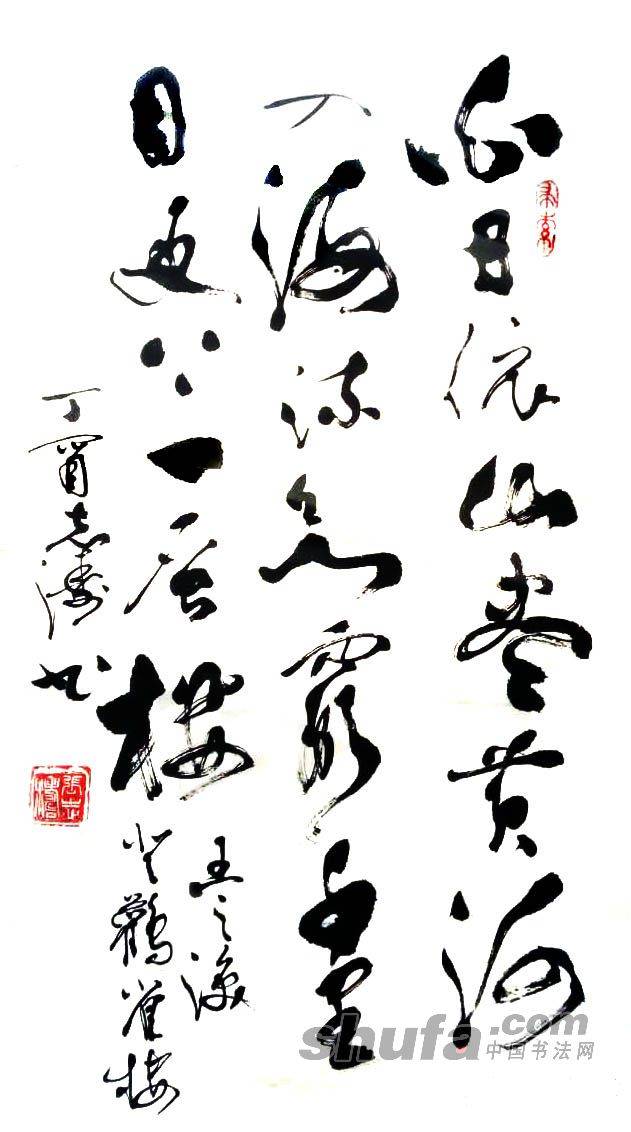 白日依山盡黄河
入海流欲窮千里
目更上一層樓
王之渙
登鸛雀樓
丁酉志濤书
shufa.com
中国书法网